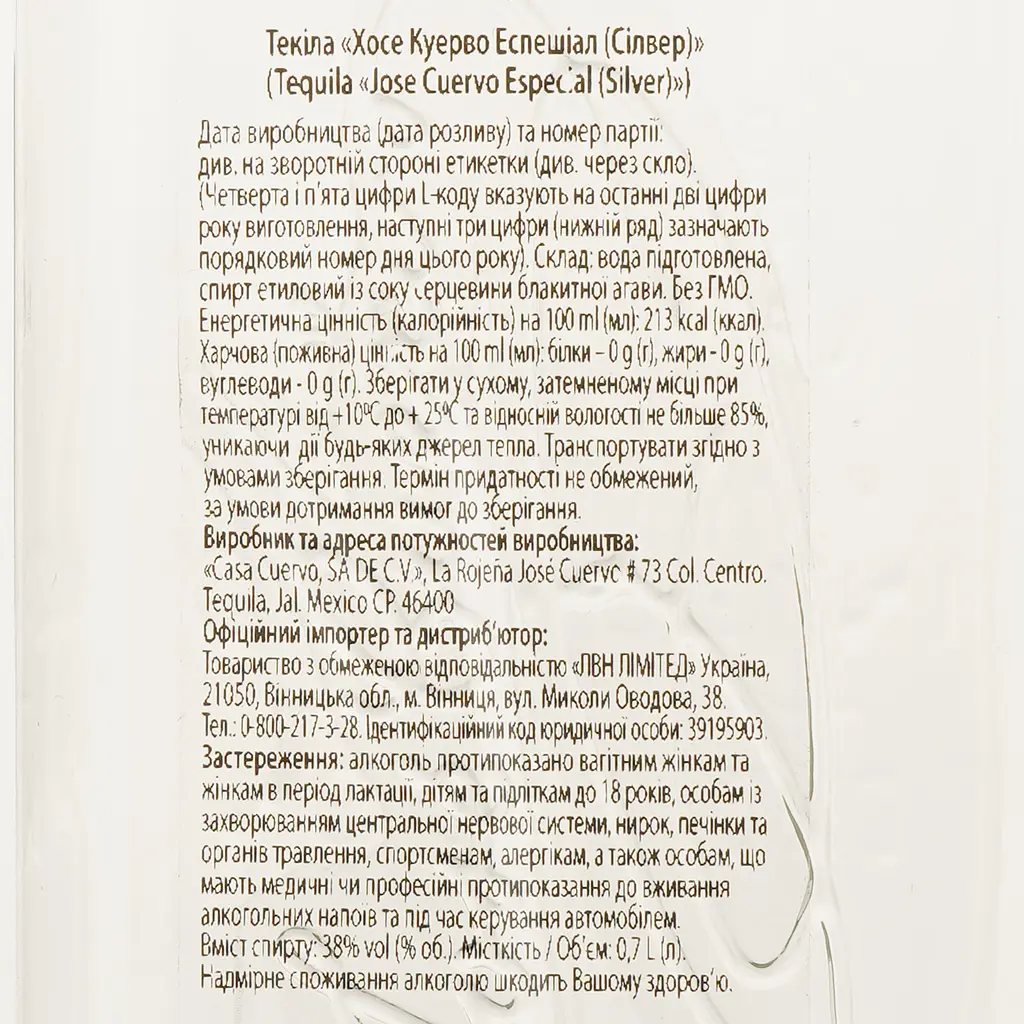 Текіла «Хосе Куерво Еспешіал (Сілвер)»
(Tequila «Jose Cuervo Especial (Silver)»)
Дата виробництва (дата розливу) та номер партії:
див. на зворотній стороні етикетки (див. через скло).
(Четверта і п'ята цифри L-коду вказують на останні дві цифри
року виготовлення, наступні три цифри (нижній ряд) зазначають
порядковий номер дня цього року). Склад: вода підготовлена,
спирт етиловий із соку серцевини блакитної агави. Без ГМО.
Енергетична цінність (калорійність) на 100 ml (мл): 213 kcal (ккал).
Харчова (поживна) цінність на 100 ml (мл): білки – 0 g (г), жири - 0 g (г),
вуглеводи - 0 g (г). Зберігати у сухому, затемненому місці при
температурі від +10ºС до + 25ºС та відносній вологості не більше 85%,
уникаючи дії будь-яких джерел тепла. Транспортувати згідно з
умовами зберігання. Термін придатності не обмежений,
за умови дотримання вимог до зберігання.
Виробник та адреса потужностей виробництва:
«Casa Cuervo, SA DE C.V.», La Rojeña José Cuervo # 73 Col. Centro.
Tequila, Jal. Mexico CP. 46400
Офіційний імпортер та дистриб'ютор:
Товариство з обмеженою відповідальністю «ЛВН ЛІМІТЕД» Україна,
21050, Вінницька обл., м. Вінниця, вул. Миколи Оводова, 38.
Тел.: 0-800-217-3-28. Ідентифікаційний код юридичної особи: 39195903.
Застереження: алкоголь протипоказано вагітним жінкам та
жінкам в період лактації, дітям та підліткам до 18 років, особам із
захворюванням центральної нервової системи, нирок, печінки та
органів травлення, спортсменам, алергікам, а також особам, що
мають медичні чи професійні протипоказання до вживання
алкогольних напоїв та під час керування автомобілем.
Вміст спирту: 38% vol (% об.). Місткість / Об'єм: 0,7 L (л).
Надмірне споживання алкоголю шкодить Вашому здоров'ю.